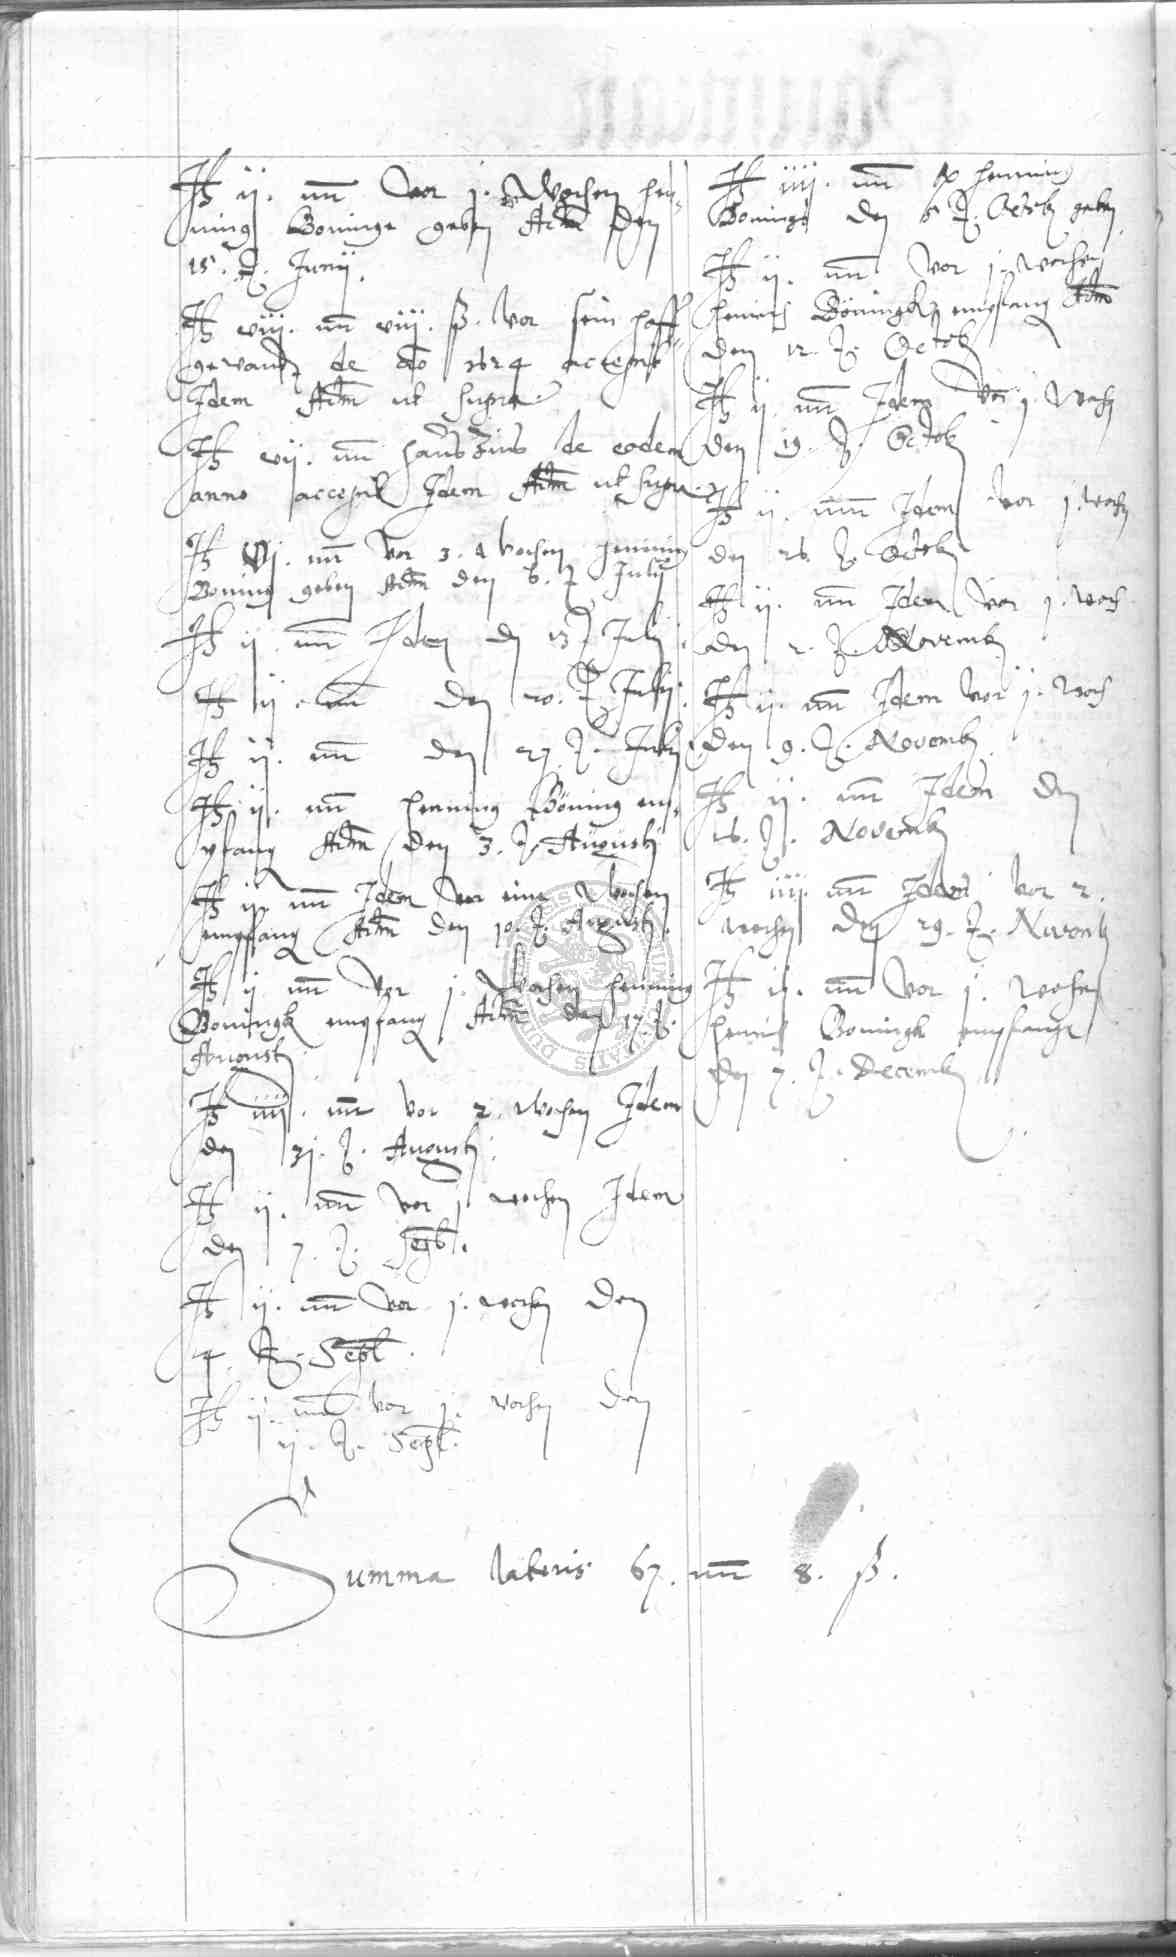 It ij. mr vor j. Wochen Hen-
ning Boninge geben Actum den
15. J. Junij.
It viij. mr viij. ß. vor sein hoff-
gewandt de ao 1624 accepit
Idem Actum ut supra.
It vij. mr haus Zins de eodem
anno accepit Idem Actum ut supra.
It vj. mr vor 3. Wochen Henning
Boning geben Actum den 6. J. Julij
It ij. mr Idem den 13. J. Julij
It ij. mr den 20. J. Julij.
It ij. mr den 27. J. Julij.
It ij. mr Henning Böning em-
pfang Actum den 3. J. Augusti
It ij. mr Idem vor eine Wochen
empfang Actum den 10. J. Augusti.
It ij mr vor j. Wochen Henning
Boningk empfang Actum den 17. J.
Augusti.
It iiij. mr vor 2. Wochen Idem
den 31. J. Augusti.
It ij. mr vor j wochen Idem
den 7. J. Septb.
It ij. mr vor j. wochen den
J. Septb.
It ij. mr vor j. wochen den
J. Septb.
It iiij. mr Henning
Boninge den 6 J. Octob geben
It ij. mr vor j. wochen
Henning Böningk empfang Actum
den 12. J. Octob
It ij. mr Idem vor j. Woch
den 19. J. Octob
It ij. mr Idem vor j. woch
den 26. J. Octob
It ij. mr Idem vor j. woch
den 2. J. Novemb
It ij. mr Idem vor j. woch
den 9. J. Novemb
It ij. mr Idem den
16. J. Novemb
It iiij. mr Idem vor 2.
wochen den 29. J. Novemb
It ij. mr vor j. wochen
Henning Boningk empfange
den 7. J. Decemb
Summa lateris 67. mr 8. ß.